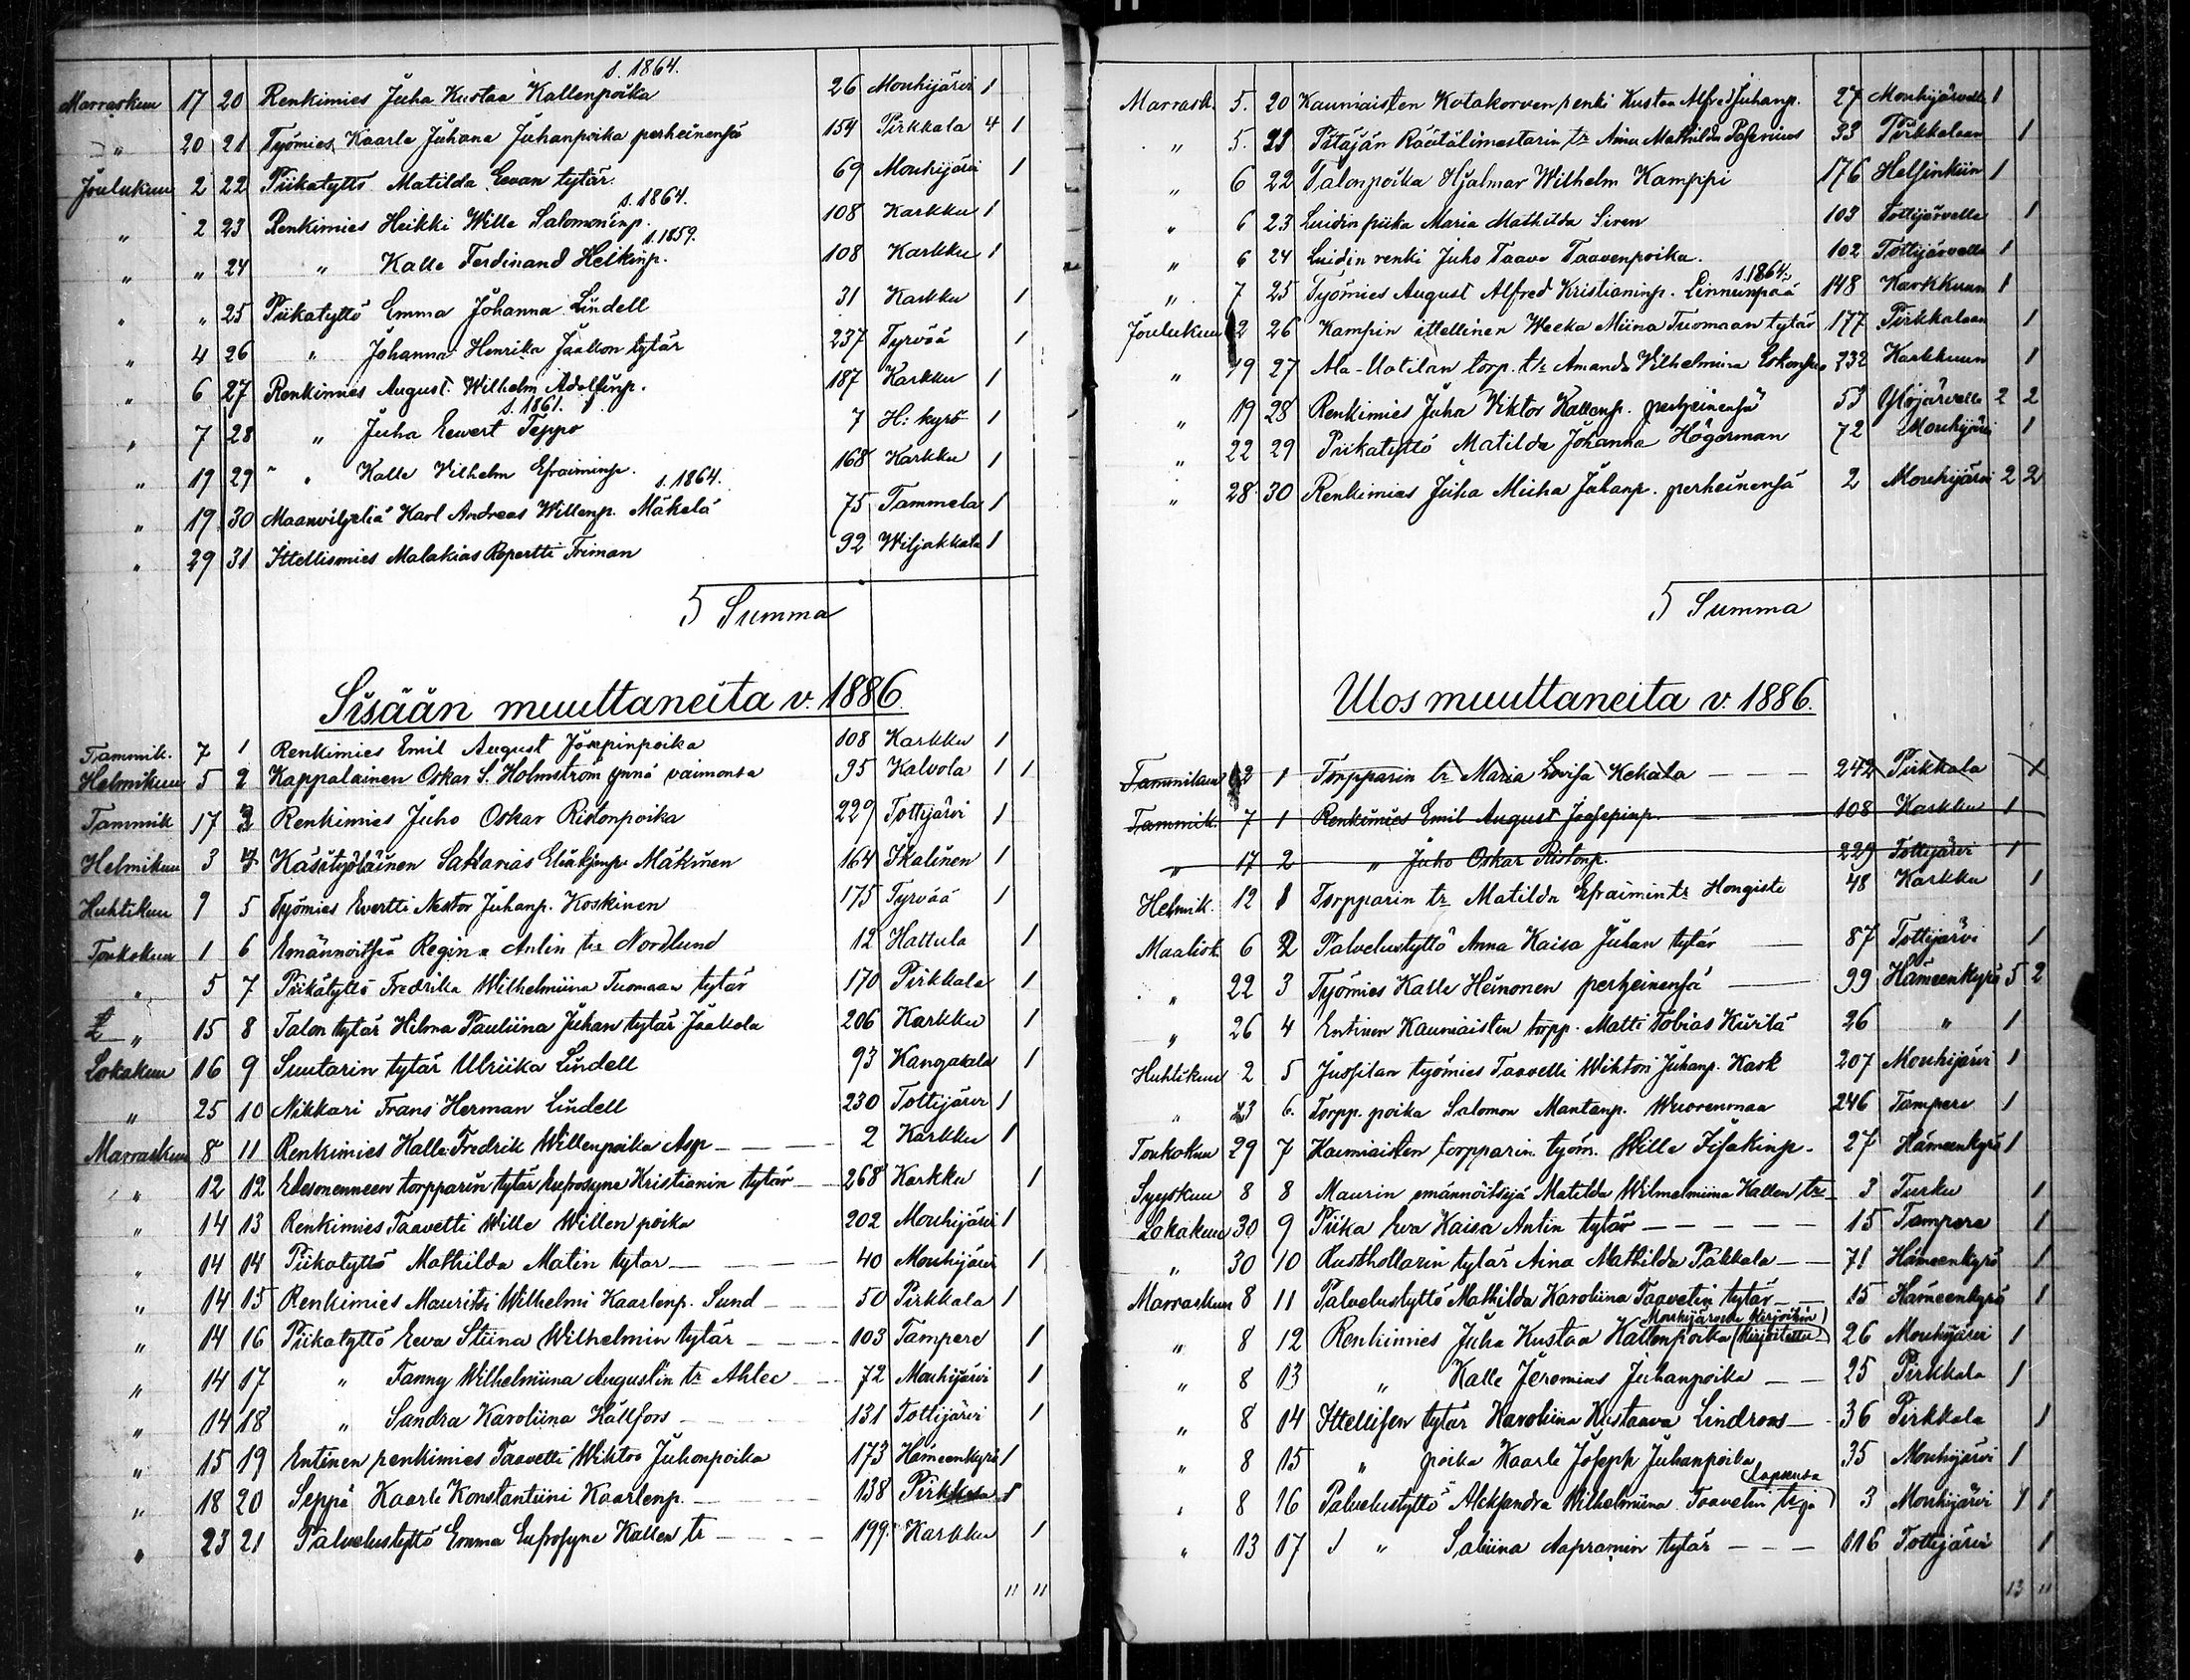 s. 1864.
Marraskuu 17 20 Renkimies Juha Kustaa Kallenpoika 26 Mouhijärvi 1
" 20 21 Työmies Kaarle Juhana Juhanpoika perheinensä 154 Pirkkala 4 1
Joulukuu 2 22 Piikatyttö Matilda Eevan tytär. 69 Mouhijärvi 1
s. 1864.
" 2 23 Renkimies Heikki Wille Salomoninp. 108 Karkku 1
s. 1859.
" " 24 " Kalle Ferdinand Heikinp. 108 Karkku 1
" " 25 Piikatyttö Emma Johanna Lindell 31 Karkku 1
" 4 26 " Johanna Henrika Jaakon tytär 237 Tyrvää 1
" 6 27 Renkimies August Wilhelm Adolfinp. 187 Karkku 1
s. 1861.
" 7 28 " Juha Eewert Teppo 7 H:kyrö 1
" 19 29 " Kalle Vilhelm Efraiminp. 168 Karkku 1
s. 1864.
" 19 30 Maanviljeliä Karl Andreas Willenp. Mäkelä 75 Tammela 1
" 29 31 Ittellismies Malakias Ropertti Friman 92 Wiljakkala 1
5 Summa
Sisään muuttaneita v. 1886.
Tammik. 7 1 Renkimies Emil August Josepinpoika 108 Karkku 1
Helmikuu 5 2 Kappalainen Oskar S. Holmström ynnä vaimonsa 95 Kalvola 1 1
Tammik 17 3 Renkimies Juho Oskar Ristonpoika 229 Tottijärvi 1
Helmikuu 3 4 Käsityöläinen Sakarias Eliakimp. Mäkinen 164 Ikalinen 1
Huhtikuu 9 5 Työmies Evertti Nestor Juhanp. Koskinen 175 Tyrvää 1
Toukokuu 1 6 Emännöitsiä Regina Antin tr Nordlund 12 Hattula 1
" 5 7 Piikatyttö Fredrika Wilhelmiina Tuomaan tytär 170 Pirkkala 1
" 15 8 Talon tytär Hilma Pauliina Juhan tytär Jaakola 206 Karkku 1
Lokakuu 16 9 Suutarin tytär Ulriika Lindell 93 Kangasala 1
" 25 10 Nikkari Frans Herman Lindell 230 Tottijärvi 1
Marraskuu 8 11 Renkimies Kalle Fredrik Willenpoika Asp 2 Karkku 1
" 12 12 torpparin tytär Eufrosyne Kristianin tytär 268 Karkku 1
" 14 13 Renkimies Taavetti Wille Willen poika 202 Mouhijärvi 1
" 14 14 Piikatyttö Mathilda Matin tytar 40 Mouhijärvi 1
" 14 15 Renkimies Mauritsi Wilhelmi Kaarlenp. Sund 50 Pirkkala 1
" 14 16 Piikatyttö Eeva Stiina Wilhelmin tytär 103 Tampere 1
" 14 17 " Fanny Wilhelmiina Augustin tr Ahlee 72 Mouhijärvi 1
" 14 18 " Sandra Karoliina Hällfors 131 Tottijärvi 1
" 15 19 Entinen renkimies Taavetti Wiktor Juhonpoika 173 Hämeenkyrö 1
" 18 20 Seppä Kaarle Konstantiini Kaarlenp. 138 Pirkkala 1
" 23 21 Palvelustyttö Emma Eufrosyne Kallen tr 199 Karkku 1
11 11
Marrask. 5. 20 Kauniaisten Kotakorven renki Kustaa Alfred Juhanp. 27 Mouhijärvelle 1
" 5. 21 Pitäjän Räätälimestarin tr Aina Mathilda 33 Pirkkalaan 1
" 6 22 Talonpoika Hjalmar Wilhelm Kamppi 176 Helsinkiin 1
" 6 23 Luidin piika Maria Mathilda Siren 103 Tottijärvelle 1
" 6 24 Luidin renki Juho Taavo Taavenpoika. 102 Tottijärvelle 1
s. 1864.
" 7 25 Työmies August Alfred Kristianinp. Linnunpää 148 Karkkuun 1
Joulukuu 2 26 Kampin ittellinen Weeka Miina Tuomaan tytär 177 Pirkkalaan 1
" 19 27 Ala-Uotilan torp. tr Amanda Vilhelmiina 232 Karkkuun 1
" 19 28 Renkimies Juha Viktor Kallenp. perheinensä 53 Ylöjärvelle 2 2
" 22 29 Piikatyttö Matilda Johanna Högerman 72 Mouhijärvi 1
" 28 30 Renkimies Juha Miiha Juhanp. perheinensä 2 Mouhijärvi 2 2
5 Summa
Ulos muuttaneita v. 1886.
Tammikuu 2 1 Torpparin tr Maria Lovisa Kekala 242 Pirkkala 1
Tammik. 7 1 Renkimies Emil August Joosepinp. 108 Karkku 1
" 17 2 " Juho Oskar Ristonp. 229 Tottijärvi 1
Helmik. 12 1 Torpparin tr Matilda Efraimin tr Hongisto 48 Karkku 1
Maalisk. 6 2 Palvelustyttö Anna Kaisa Juhan tytär 87 Tottijärvi 1
" 22 3 Työmies Kalle Heinonen perheinensä 99 Hämeenkyrö 5 2
" 26 4 Entinen Kauniaisten torpp. Matti Tobias Kiirilä 26 " 1
Huhtikuu 2 5 Jussilan työmies Taavetti Wihtori Juhanp. Kask 207 Mouhijärvi 1
" 23 6. Torpp. poika Salomon Mantanp. Wuorenmaa 246 Tampere 1
Toukokuu 29 7 Kauniaisten torpparin työm. Wille Iisakinp. 27 Hämeenkyrö 1
Syyskuu 8 8 Maurin emännöitsijä Matilda Wilmelmiina Kallen tr 3 Turku 1
Lokakuu 30 9 Piika Eva Kaisa Antin tytär 15 Tampere 1
" 30 10 Rusthollarin tytär Aina Mathilda Pakkala 71 Hämeenkyrö 1
Marraskuu 8 11 Palvelustyttö Mathilda Karoliina Taavetin tytär 15 Hämeenkyrö 1
" 8 12 Renkimies Juha Kustaa Kallenpoika 26 Mouhijärvi 1
" 8 13 " Kalle Jeremias Juhanpoika 25 Pirkkala 1
" 8 14 Ittellisen tytär Karoliina Kustaava Lindroos 36 Pirkkala 1
" 8 15 " poika Kaarle Joseph Juhanpoika 35 Mouhijärvi 1
lapsensa
" 8 16 Palvelustyttö Aleksandra Wilhelmiina Taavetin tr ja 3 Mouhijärvi 1 1
" 13 17 " Saliina Aapramin tytär 116 Tottijärvi 1
13 11